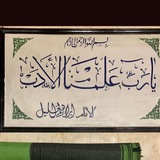 بسم الله الرحمن الرحيم
يا رب علمنا الأدب